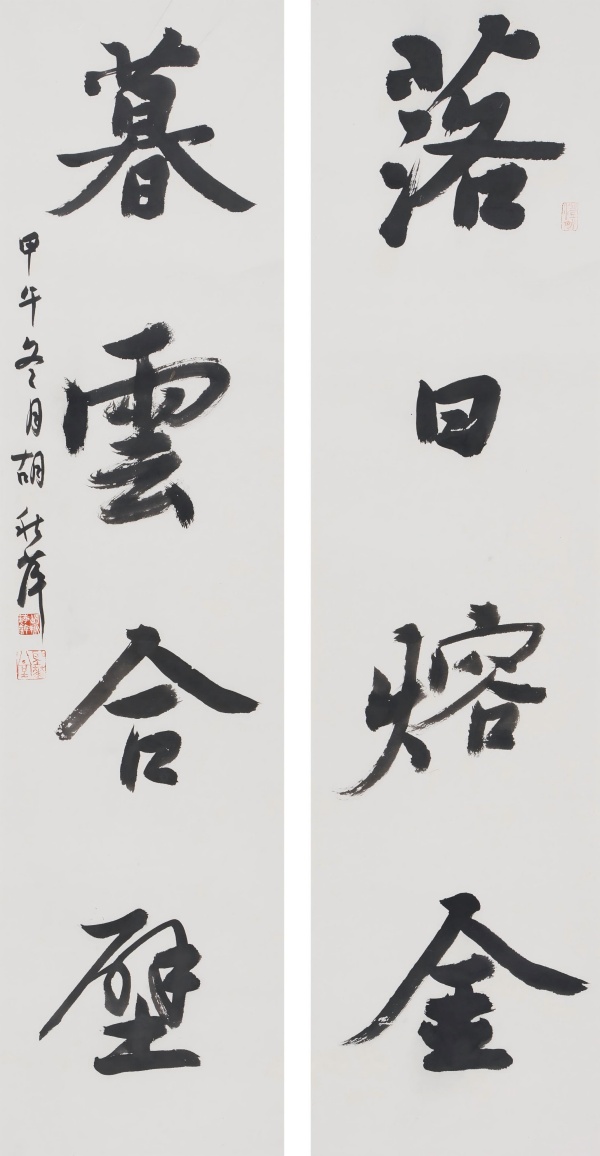 落日熔金
暮雲合壁
甲午冬月胡秋萍